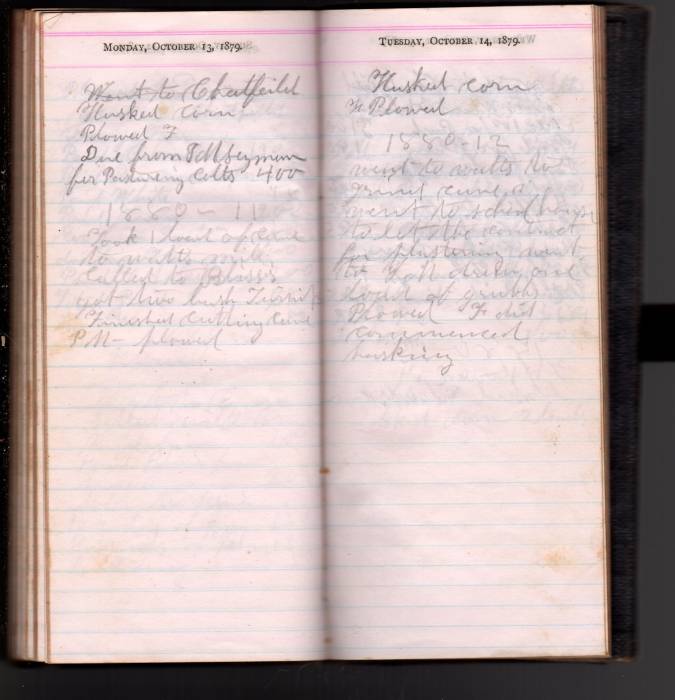 Monday, October 13, 1879.
Went to Chatfeild
Husked corn
Plowed F
Due from T M Seymour
for Pasturing Colts 400
1880 - 11
Took 1 load of Cane
to watts mill
Called to Bliss's
got two bush
Finished Cutting Cane
P M - plowed
Tuesday, October 14, 1879.
Husked corn
Plowed
1880 - 12
went to watts to
grind cane
went to school house
to let the contract
for plastering went
to
load of grubbs
Plowed F did
commenced
husking